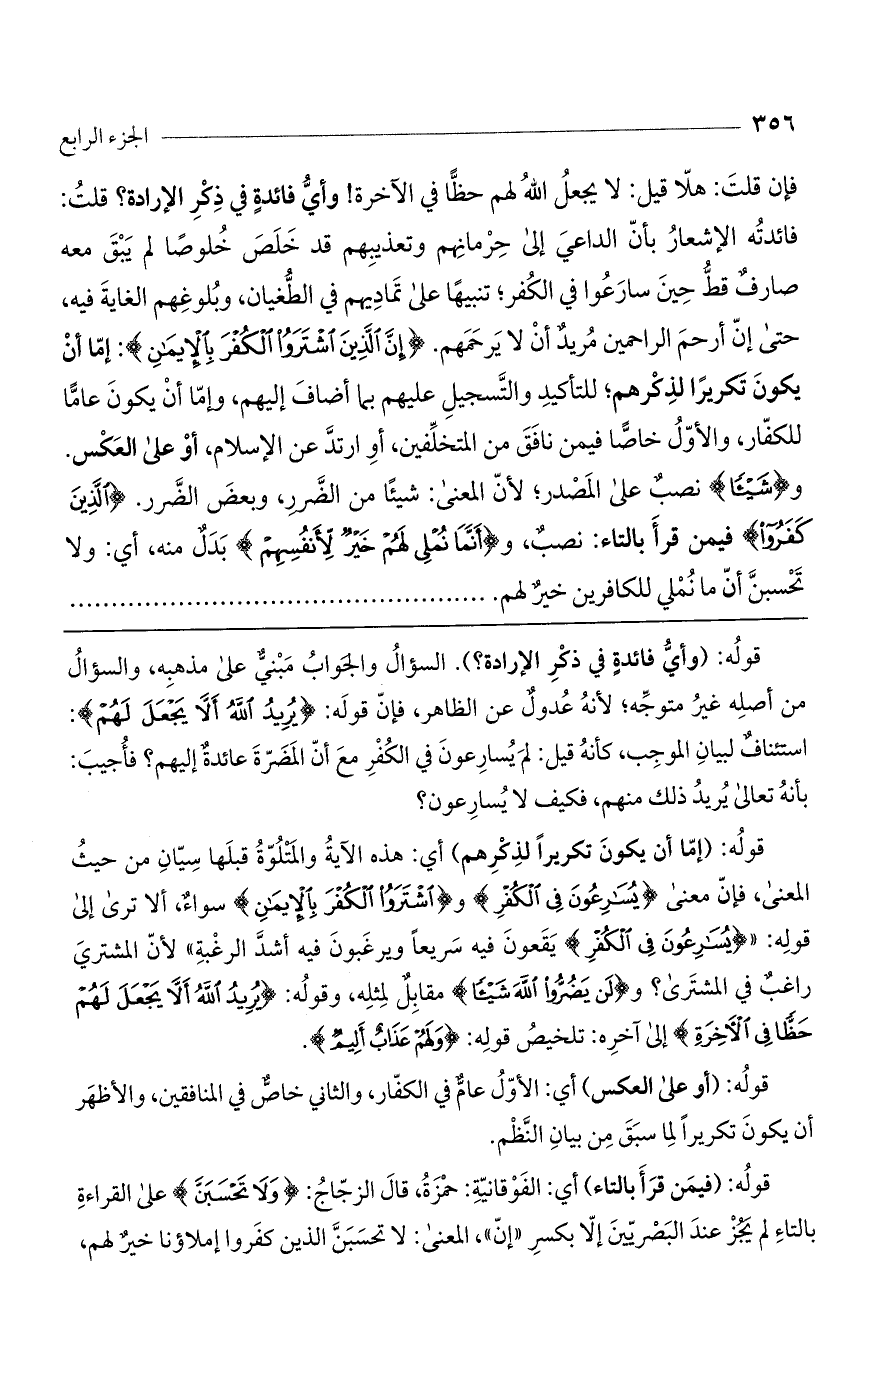 ٣٥٦ ـــــــ الجزء الرابع
فإن قلتَ: هلّا قيل: لا يجعلُ اللهُ لهم حظًّا في الآخرة! وأيُّ فائدةٍ في ذِكْرِ الإرادة؟ قلتُ:
فائدتُه الإشعارُ بأنّ الداعيَ إلىٰ حِرْمانِهم وتعذيبِهم قد خَلَصَ خُلوصًا لم يَبْقَ معه
صارفٌ قطُّ حِينَ سارَعُوا في الكُفر؛ تنبيهًا علىٰ تمَادِيهم في الطُّغيان، وبُلوغِهم الغايةَ فيه،
حتىٰ إنّ أرحمَ الراحمين مُريدٌ أنْ لا يَرحَمَهم. ﴿إِنَّ ٱلَّذِينَ ٱشْتَرَوُا۟ ٱلْكُفْرَ بِٱلْإِيمَٰنِ﴾: إمّا أنْ
يكونَ تَكريرًا لذِكْرهم؛ للتأكيدِ والتَّسجيلِ عليهم بما أضافَ إليهم، وإمّا أنْ يكونَ عامًّا
للكفّار، والأوّلُ خاصًّا فيمن نافَقَ من المتخلِّفين، أوِ ارتدَّ عن الإسلام، أوْ علىٰ العَكْس.
و﴿شَيْـًٔا﴾ نصبٌ علىٰ المَصْدر؛ لأنّ المعنىٰ: شيئًا من الضَّررِ، وبعضَ الضَّرر. ﴿ٱلَّذِينَ
كَفَرُوٓا۟﴾ فيمن قرأَ بالتاء: نصبٌ، و﴿أَنَّمَا نُمْلِى لَهُمْ خَيْرٌ لِّأَنفُسِهِمْ﴾ بَدَلٌ منه، أي: ولا
تَحْسبنَّ أنّ ما نُمْلي للكافرين خيرٌ لهم. ..................................................
قولُه: (وأيُّ فائدةٍ في ذكْرِ الإرادة؟). السؤالُ والجَوابُ مَبْنيٌّ علىٰ مذهبِه، والسؤالُ
من أصلِه غيرُ متوجِّه؛ لأنهُ عُدولٌ عن الظاهر، فإنّ قولَه: ﴿يُرِيدُ ٱللَّهُ أَلَّا يَجْعَلَ لَهُمْ﴾:
استئنافٌ لبيانِ الموجِب، كأنهُ قيل: لمَ يُسارِعونَ في الكُفْرِ معَ أنّ المَضَرّةَ عائدةٌ إليهم؟ فأُجيبَ:
بأنهُ تعالىٰ يُريدُ ذلك منهم، فكيف لا يُسارِعون؟
قولُه: (إمّا أن يكونَ تكريراً لذِكْرِهم) أي: هذه الآيةُ والمَتْلُوّةُ قبلَها سِيّانِ من حيثُ
المعنىٰ، فإنّ معنىٰ ﴿يُسَٰرِعُونَ فِى ٱلْكُفْرِ﴾ و﴿ٱشْتَرَوُا۟ ٱلْكُفْرَ بِٱلْإِيمَٰنِ﴾ سواءٌ، ألا ترىٰ إلىٰ
قولِه: «﴿يُسَٰرِعُونَ فِى ٱلْكُفْرِ﴾ يَقعونَ فيه سَريعاً ويرغَبونَ فيه أشدَّ الرغْبةِ» لأنّ المشتريَ
راغبٌ في المشترَىٰ؟ و﴿لَن يَضُرُّوا۟ ٱللَّهَ شَيْـًٔا﴾ مقابِلٌ لمِثلِه، وقولُه: ﴿يُرِيدُ ٱللَّهُ أَلَّا يَجْعَلَ لَهُمْ
حَظًّا فِى ٱلْـَٔاخِرَةِ﴾ إلىٰ آخرِه: تلخيصُ قولِه: ﴿وَلَهُمْ عَذَابٌ أَلِيمٌ﴾.
قولُه: (أو علىٰ العكس) أي: الأوّلُ عامٌّ في الكفّار، والثاني خاصٌّ في المنافقين، والأظهَر
أن يكونَ تكريراً لمِا سبَقَ مِن بيانِ النَّظْم.
قولُه: (فيمَن قرَأَ بالتاء) أي: الفَوْقانيّةِ: حمْزةُ، قالَ الزجّاجُ: ﴿وَلَا تَحْسَبَنَّ﴾ علىٰ القراءةِ
بالتاءِ لم يَجُزْ عندَ البَصْريّينَ إلّا بكسرِ «إنّ»، المعنىٰ: لا تحسَبَنَّ الذين كفَروا إملاؤنا خيرٌ لهم،